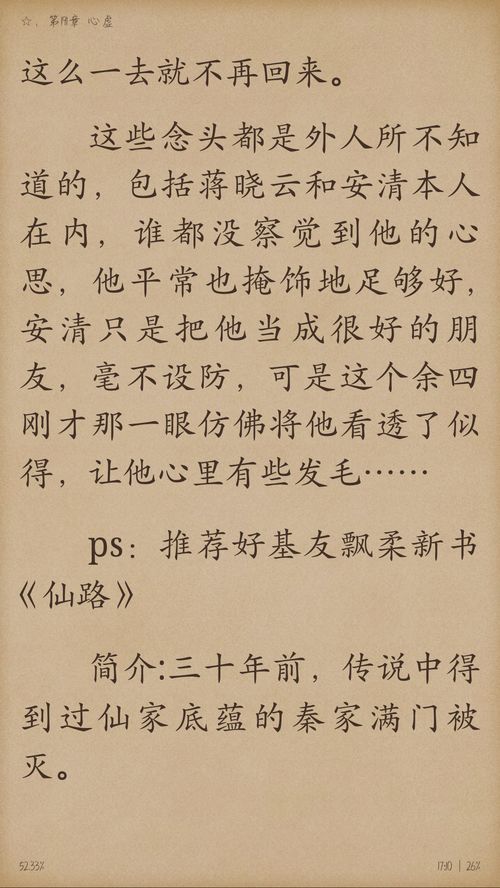 心虚
这么一去就不再回来。
这些念头都是外人所不知
道的，包括蒋晓云和安清本人
在内，谁都没察觉到他的心
思，他平常也掩饰地足够好，
安清只是把他当成很好的朋
友，毫不设防，可是这个余四
刚才那一眼仿佛将他看透了似
得，让他心里有些发毛……
ps：推荐好基友飘柔新书
《仙路》
简介:三十年前，传说中得
到过仙家底蕴的秦家满门被
灭。
52.33%
17:10 | 26%